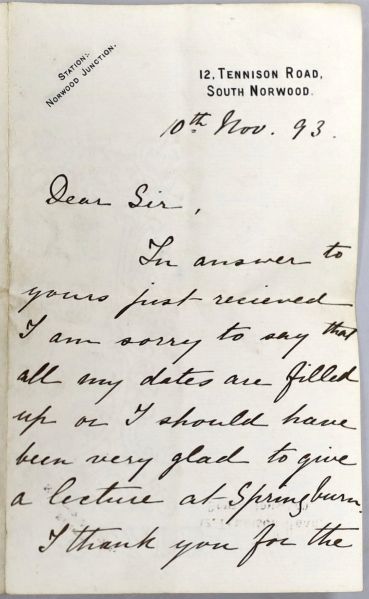 STATION:
NORWOOD JUNCTION.
12, TENNISON ROAD,
SOUTH NORWOOD.
10th Nov. 93.
Dear Sir,
In answer to
yours just recieved
I am sorry to say that
all my dates are filled
up or I should have
been very glad to give
a lecture at Springburn.
I thank you for the